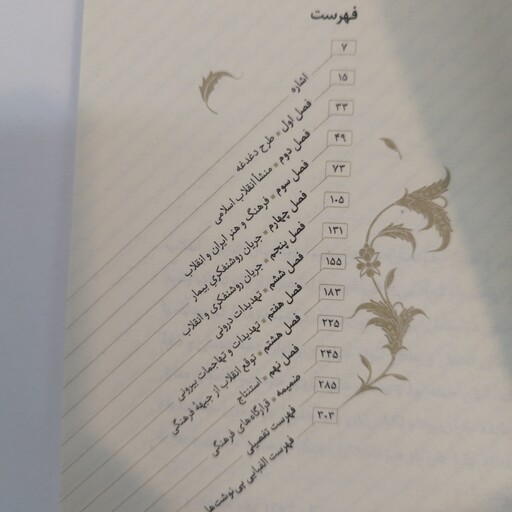 فهرست
۷ اشاره
۱۵ فصل اول * طرح دغدغه
۳۳ فصل دوم * منشأ انقلاب اسلامی
۴۹ فصل سوم * فرهنگ و هنر ایران و انقلاب
۷۳ فصل چهارم * جریان روشنفکری بیمار
۱۰۵ فصل پنجم * جریان روشنفکری و انقلاب
۱۳۱ فصل ششم * تهدیدات درونی
۱۵۵ فصل هفتم * تهدیدات و تهاجمات بیرونی
۱۸۳ فصل هشتم * توقع انقلاب از جبههٔ فرهنگی
۲۲۵ فصل نهم * استنتاج
۲۴۵ ضمیمه * قرارگاه‌های فرهنگی
۲۸۵ فهرست تفصیلی
۳۰۳ فهرست الفبایی پی‌نوشت‌ها